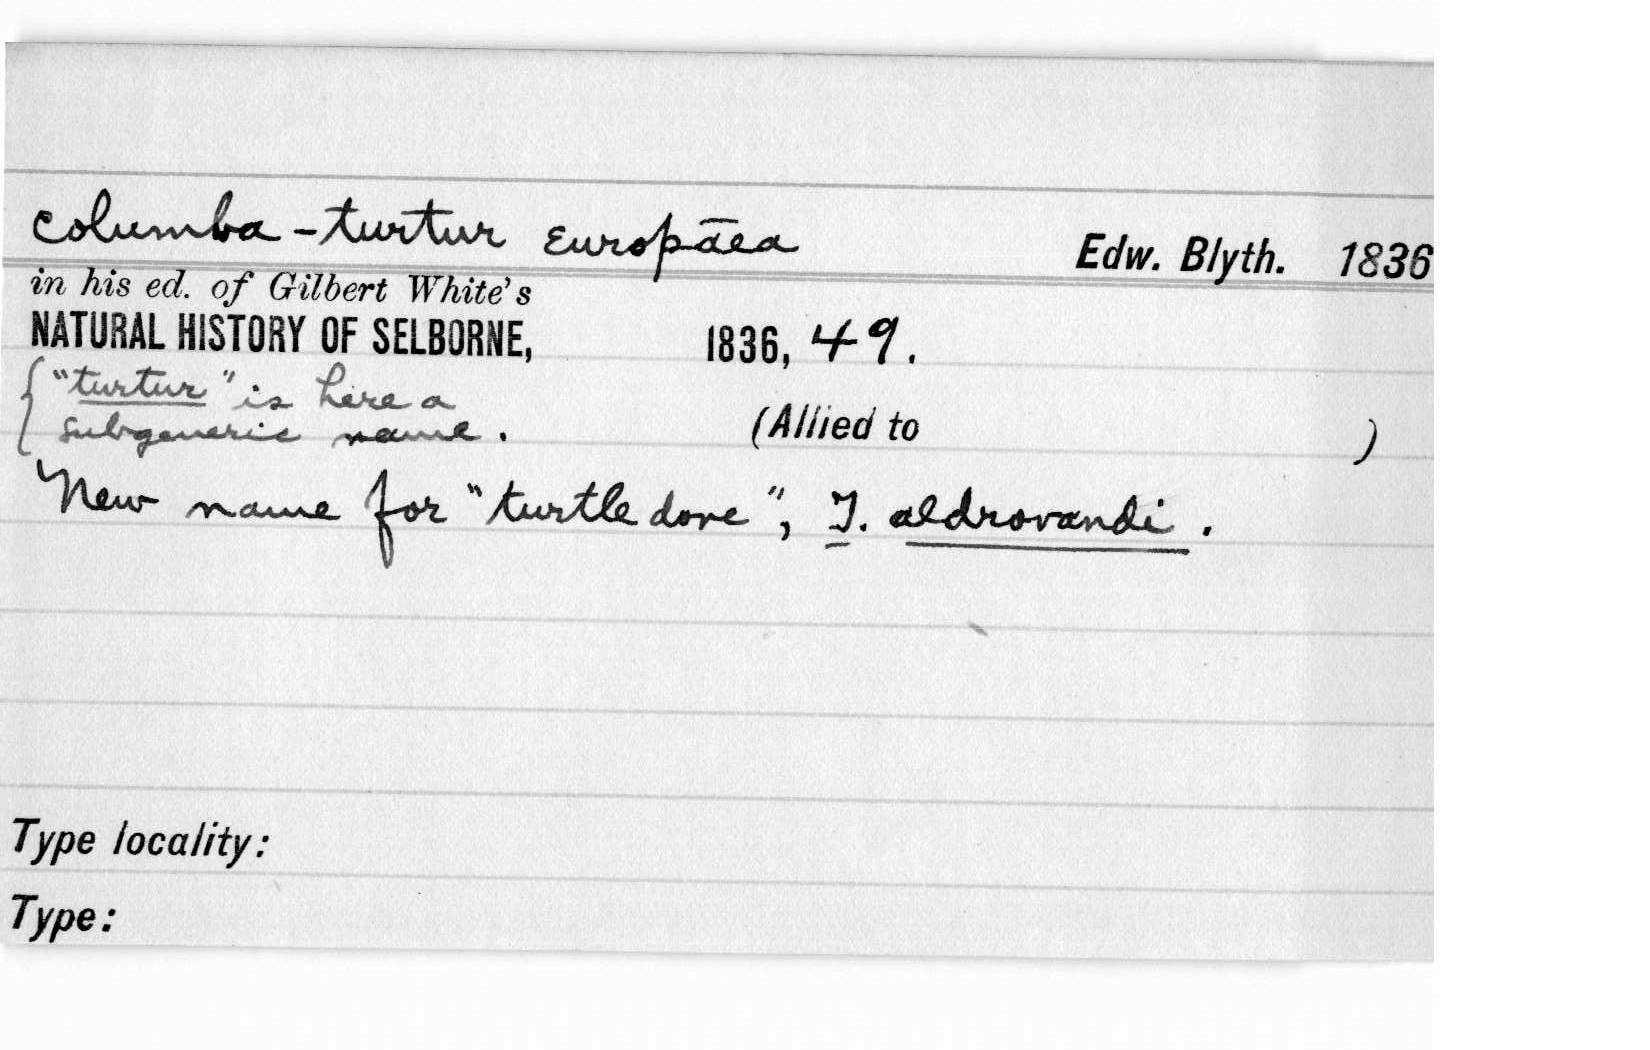 columba-turtur europāea Edw. Blyth. 1836
in his ed. of Gilbert White's
NATURAL HISTORY OF SELBORNE, 1836, 49.
{"turtur" is here a
subgeneric name. (Allied to )
New name for "turtle dove", T. aldrovandi.
Type locality:
Type: